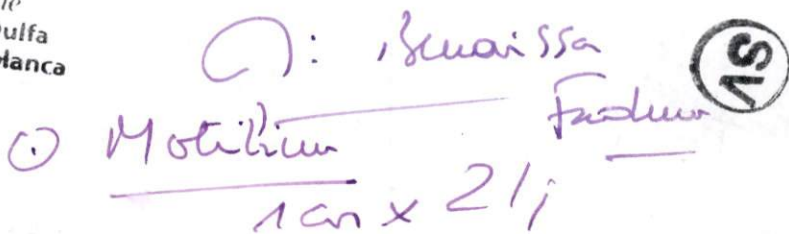 ulfa
lanca
: Benaissa
Fadma
⊙ Motilium
1 cm x 2/j
SV